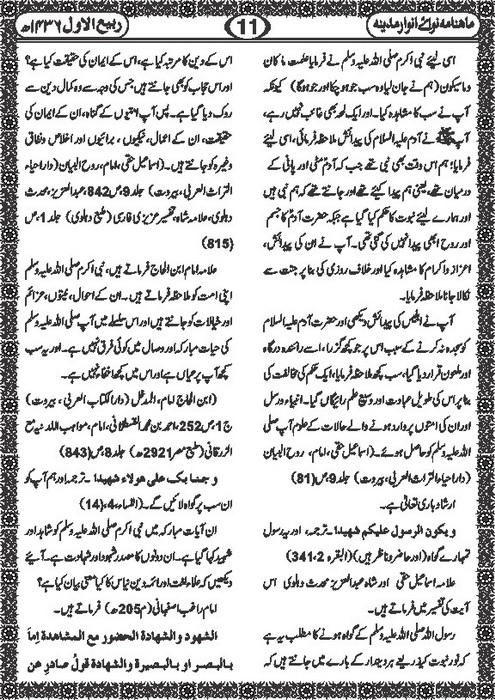 ماھنامہ نوائے انوار مدینہ
11
ربیع الاول ۱۴۳۶ھ
اسی لیئے نبی اکرم صلی اللہ علیہ وسلم نے فرمایا علمت ما کان
وما سیکون (جو ہو چکا اور جو ہونے والا ہے میں نے سب جان لیا) کیونکہ
آپ نے سب کا مشاہدہ کیا۔ اور ایک لمحہ بھی غائب نہیں رہے،
آپ ﷺ نے آدم علیہ السلام کی پیدائش ملاحظہ فرمائی، اسی لیئے
فرمایا! ہم اس وقت بھی نبی تھے جب کہ آدم مٹی اور پانی کے
درمیان تھے، یعنی ہم پیدا کیئے گئے تھے اور جانتے تھے کہ ہم نبی ہیں
اور ہمارے لیئے نبوت کا حکم کیا گیا ہے جبکہ حضرت آدم کا جسم
اور روح ابھی پیدا نہیں کی گئی تھی۔ آپ نے ان کی پیدائش،
اعزاز و اکرام کا مشاہدہ کیا اور خلاف روزی کی بنا پر جنت سے
نکالا جانا ملاحظہ فرمایا۔
آپ نے ابلیس کی پیدائش دیکھی اور حضرت آدم علیہ السلام
کو سجدہ نہ کرنے کے سبب اس پر جو کچھ گزرا، اسے راندہ درگاہ
اور ملعون قرار دیا گیا، سب کچھ ملاحظہ فرمایا، ایک حکم کی مخالفت کی
بنا پر اس کی طویل عبادت اور وسیع علم رائیگاں گیا۔ انبیاء و رسل
اور ان کی امتوں پر وارد ہونے والے حالات کے علوم آپ صلی
اللہ علیہ وسلم کو حاصل ہوئے۔ (اسماعیل حقی، امام، روح البیان
(دار احیاء التراث العربی، بیروت) جلد 9، ص 81)
ارشاد باری تعالیٰ ہے۔
و یکون الرسول علیکم شہیدا۔ ترجمہ، اور یہ رسول
تمہارے گواہ (اور حاضر و ناظر ہیں) (البقرہ 2-341)
علامہ اسماعیل حقی اور شاہ عبدالعزیز محدث دہلوی اس
آیت کی تفسیر میں فرماتے ہیں۔
رسول اللہ صلی اللہ علیہ وسلم کے گواہ ہونے کا مطلب یہ ہے
کہ نور نبوت کے ذریعے ہر دیندار کے بارے میں جانتے ہیں کہ
اس کے دین کا مرتبہ کیا ہے، اس کے ایمان کی حقیقت کیا ہے؟
اور اس حجاب کو بھی جانتے ہیں، جس کی وجہ سے وہ کمال دین سے
روک دیا گیا ہے۔ پس آپ امتیوں کے گناہ، ان کے ایمان کی
حقیقت، ان کے اعمال، نیکیوں، برائیوں اور اخلاص و نفاق
وغیرہ کو جانتے ہیں۔ (اسماعیل حقی، امام، روح البیان (دار احیاء
التراث العربی، بیروت) جلد 9، ص 842، عبدالعزیز، محدث
دہلوی، علامہ شاہ، تفسیر عزیزی فارسی (طبع دہلوی) جلد 1، ص
815)
علامہ امام ابن الحاج فرماتے ہیں، نبی اکرم صلی اللہ علیہ وسلم
اپنی امت کو ملاحظہ فرماتے ہیں۔ ان کے احوال، نیتوں، عزائم
اور خیالات کو جانتے ہیں اور اس سلسلے میں آپ صلی اللہ علیہ وسلم
کی حیات مبارکہ اور وصال میں کوئی فرق نہیں ہے۔ اور یہ سب
کچھ آپ پر عیاں ہے اور اس میں کچھ اخفا نہیں ہے۔
(ابن الحاج امام، المدخل (دار الکتاب العربی، بیروت)
ج 1، ص 252، احمد بن محمد القسطلانی، امام، مواہب اللدنیہ مع
الزرقانی (طبع مصر 2921ھ) جلد 8، ص 843)
و جئنا بک علی ھولاء شہیدا۔ ترجمہ اور ہم آپ کو
ان سب پر گواہ لائیں گے۔ (النساء، 4، (14
ان آیات مبارکہ میں نبی اکرم صلی اللہ علیہ وسلم کو شاہد اور
شہید کہا گیا ہے۔ ان دونوں کا مصدر شہود اور شہادت ہے۔ آیئے
دیکھیں کہ علماء لغت اور ائمہ دین نے اس کا کیا معنی بیان کیا ہے؟
امام راغب اصفہانی (م 205ھ) فرماتے ہیں۔
الشھود والشھادۃ الحضور مع المشاھدۃ اما
بالبصر او بالبصیرۃ والشھادۃ قول صادر عن